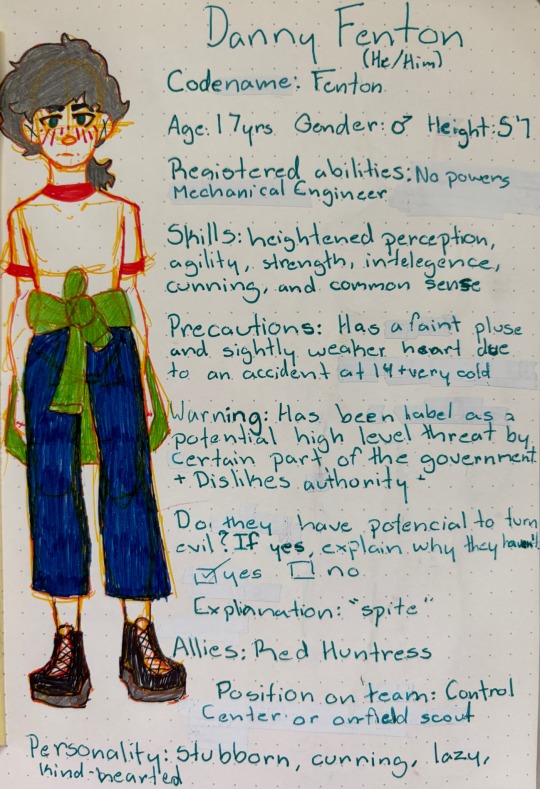 Danny Fenton
(He/Him)
Codename: Fenton
Age: 17yrs Gender: ♂ Height: 5'7
Registered abilities: No powers
Mechanical Engineer
Skills: heightened perception,
agility, strength, intelegence,
cunning, and common sense
Precautions: Has a faint pluse
and sightly weaker heart due
to an accident at 14 + very cold
Warning: Has been label as a
potential high level threat by
certain part of the government
+ Dislikes authority +
Do they have potencial to turn
evil? If yes, explain why they haven't
☑ yes ☐ no
Explination: "spite"
Allies: Red Huntress
Position on team: Control
Center or onfield scout
Personality: stubborn, cunning, lazy,
kind-hearted